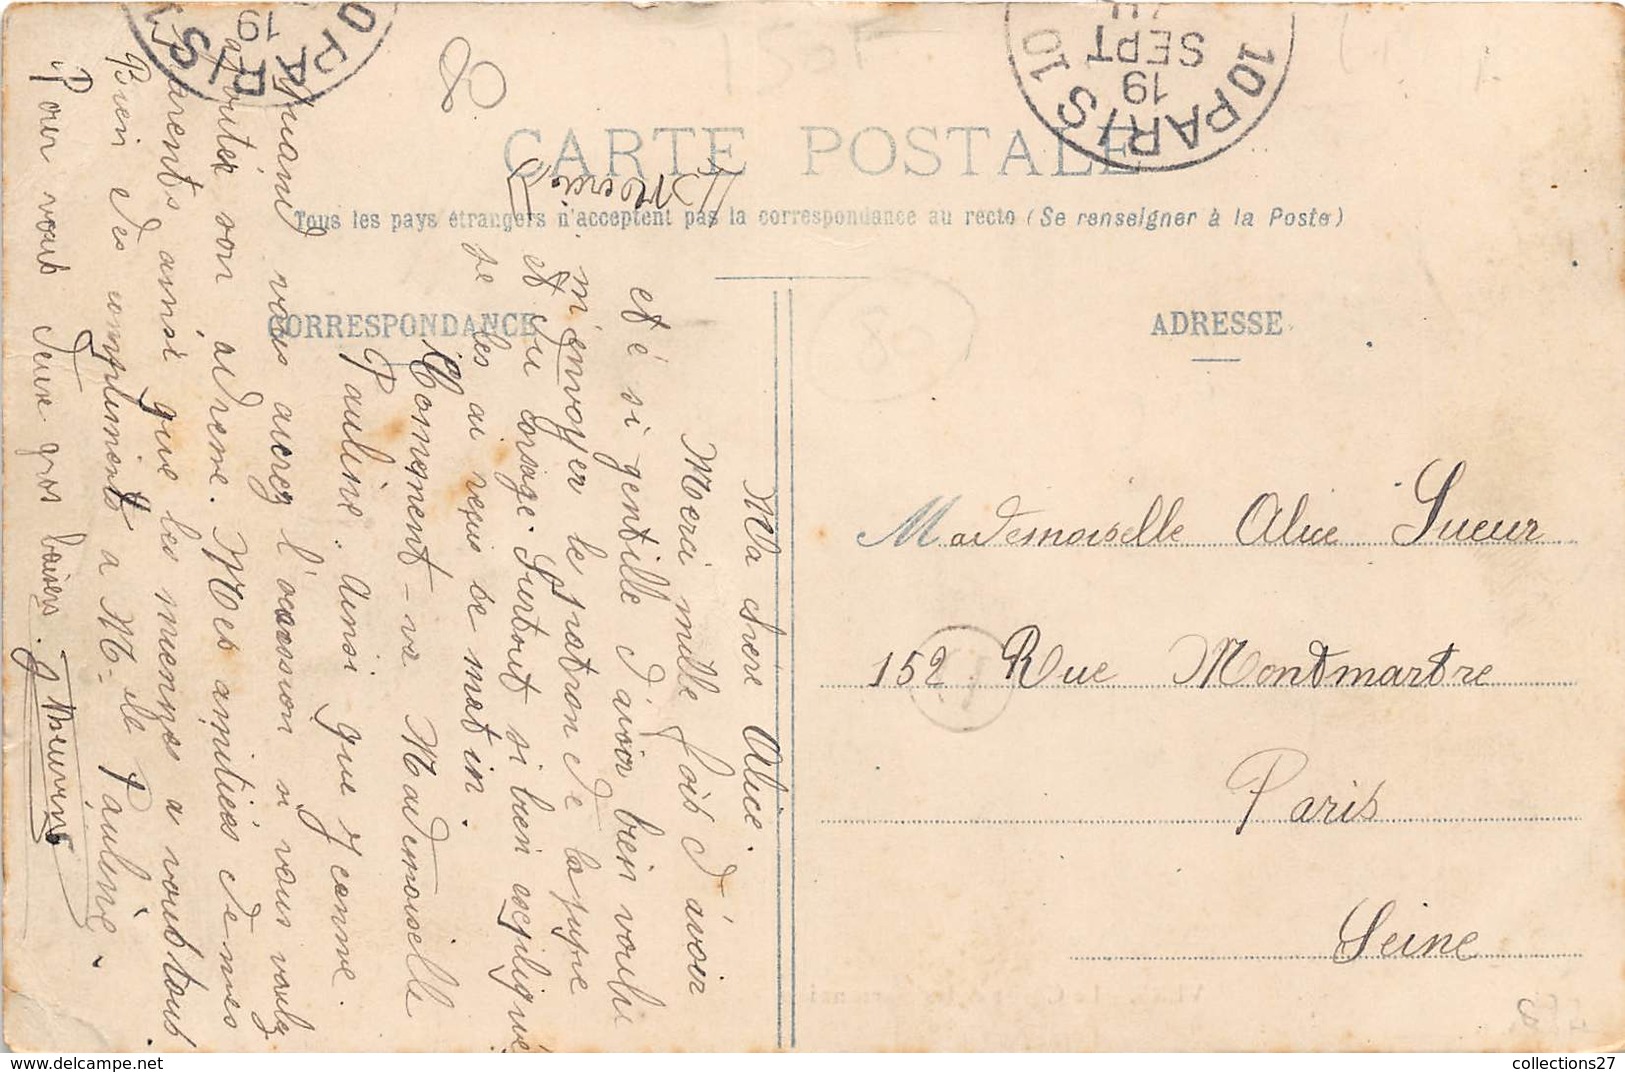 CARTE POSTALE
Tous les pays étrangers n'acceptent pas la correspondance au recto (Se renseigner à la Poste)
CORRESPONDANCE
ADRESSE
10 PARIS 10
19
SEPT
10 PARIS
19
Ma chère Alice.
Merci mille fois d'avoir
eté si gentille d'avoir bien voulu
m'envoyer le patron de la jupe
et du corsage. Surtout si bien expliqué
je les ai reçus ce matin.
Comment-va Mademoiselle
Pauline. ainsi que Jeanne.
Quand vous aurez l'occassion si vous voulez
ajouter son adresse. Mes amitiés de mes
Parents ainsi que les miennes a vous tous
Bien des compliments a M-elle Pauline.
Pour vous deux gros baisers.
Merci
Mademoiselle Alice Sueur
152 Rue Montmartre
Paris
Seine
collections27